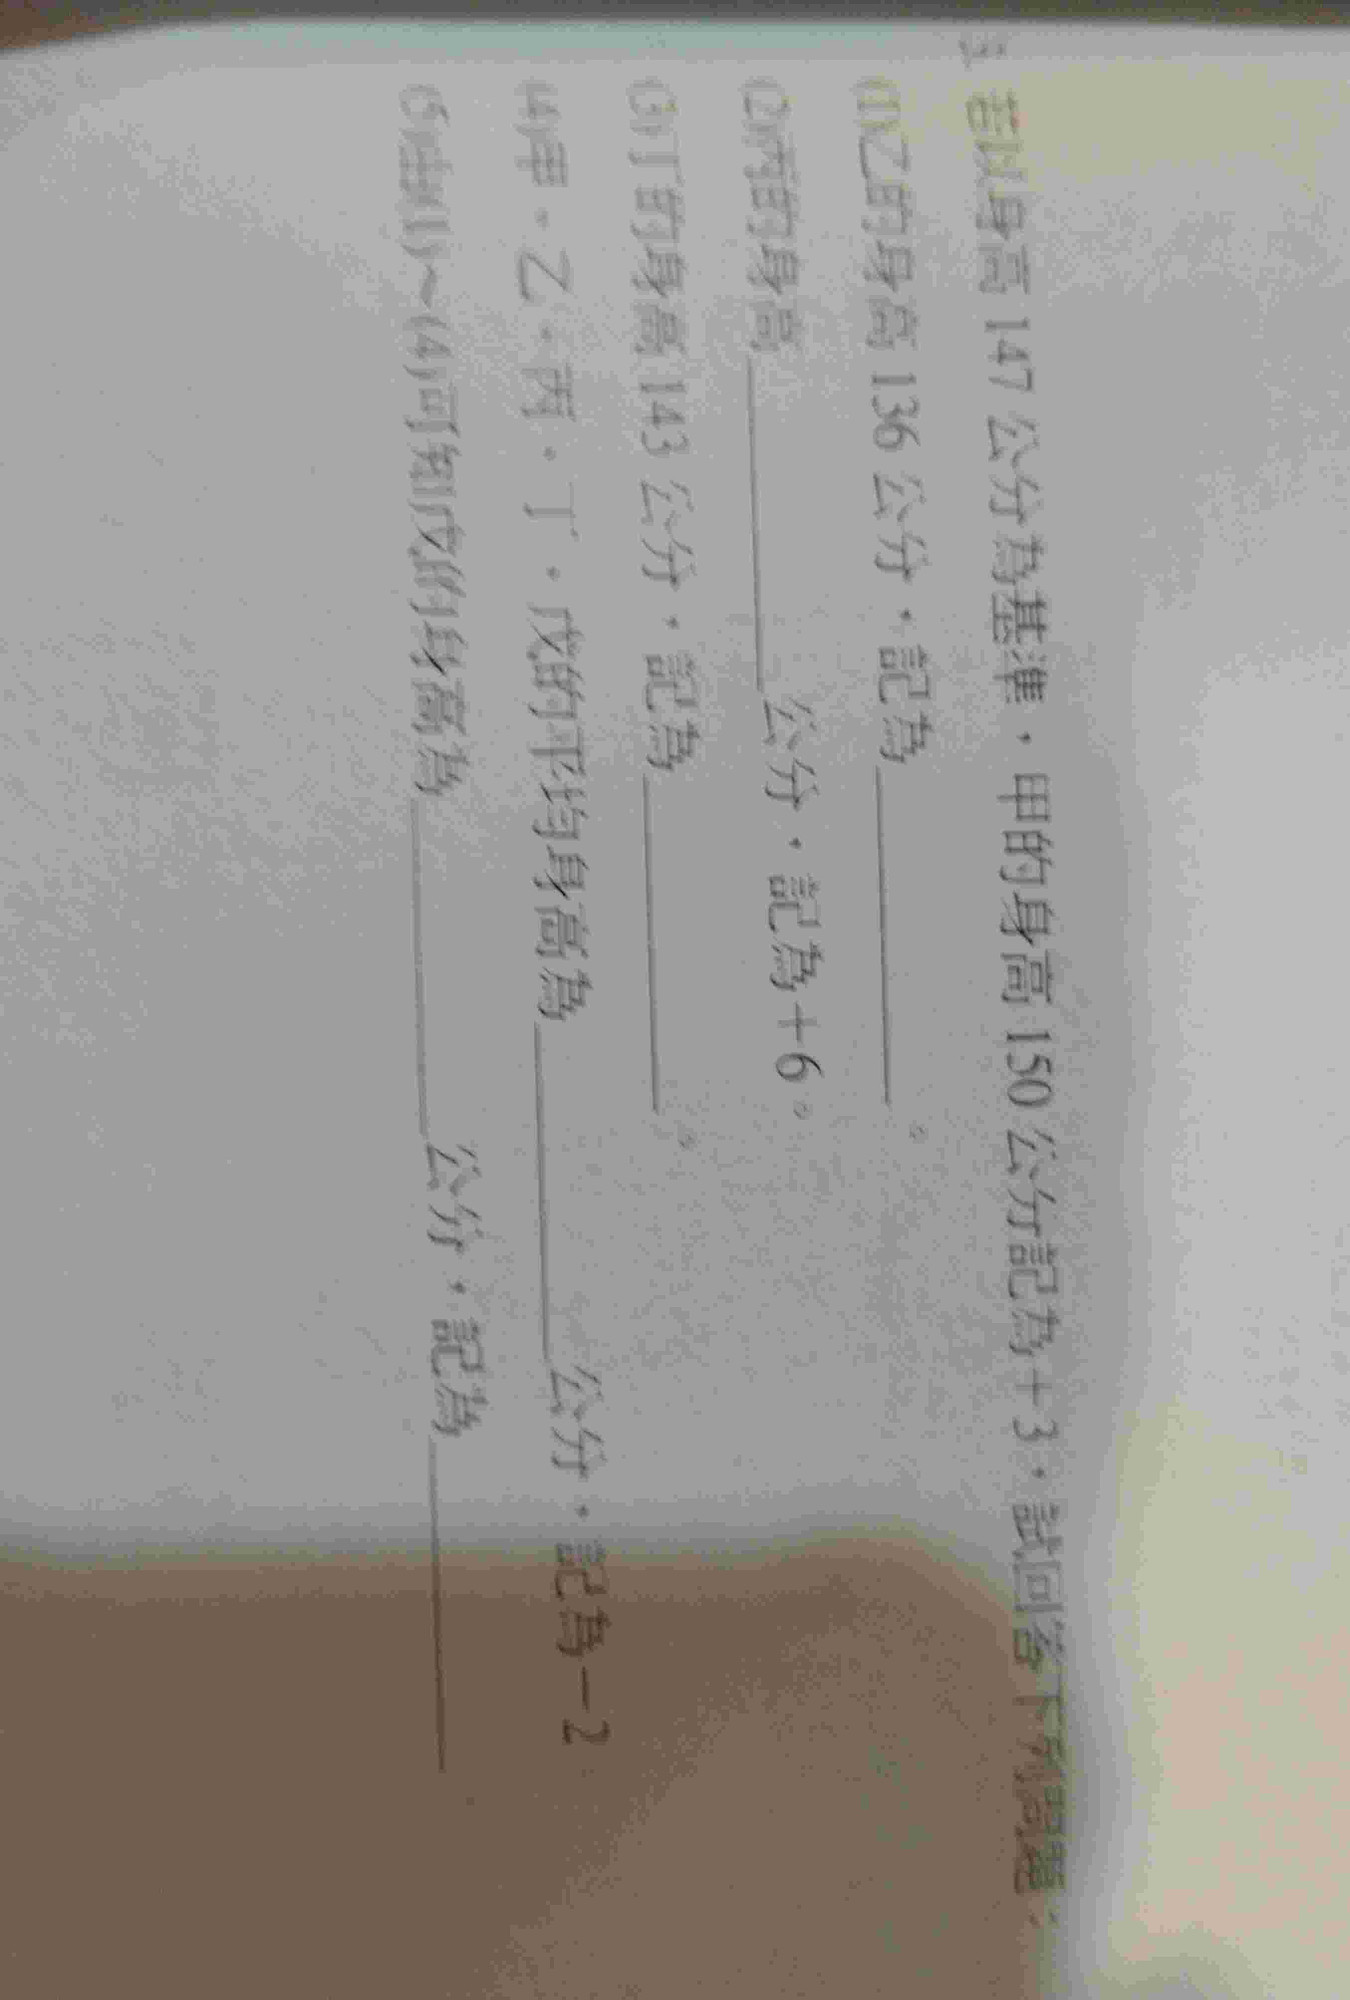 3. 若以身高 147 公分為基準，甲的身高 150 公分記為＋3，試回答下列問題：
(1)乙的身高 136 公分，記為＿＿＿＿。
(2)丙的身高＿＿＿＿公分，記為＋6。
(3)丁的身高 143 公分，記為＿＿＿＿。
(4)甲、乙、丙、丁、戊的平均身高為＿＿＿＿公分，記為－2
(5)由(1)～(4)可知戊的身高為＿＿＿＿公分，記為＿＿＿＿